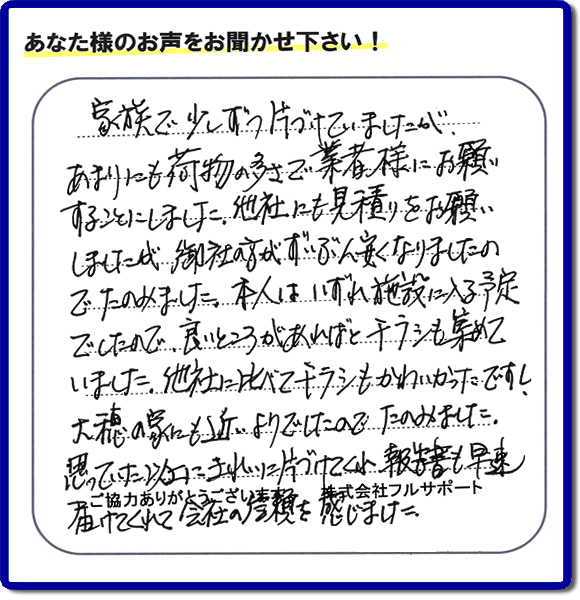 あなた様のお声をお聞かせ下さい！
家族で少しずつ片づけていましたが、
あまりにも荷物の多さで業者様にお願い
することにしました。他社にも見積りをお願い
しましたが、御社の方がずいぶん安くなりましたの
でたのみました。本人はいずれ施設に入る予定
でしたので、良いところがあればとチラシも集めて
いました。他社に比べてチラシもかわいかったです！
大穂の家にも近いよりでしたのでたのみました。
思っていた以上にきれいに片づけてくれ、報告書も早速
ご協力ありがとうございます 株式会社フルサポート
届けてくれて会社の信頼を感じました。